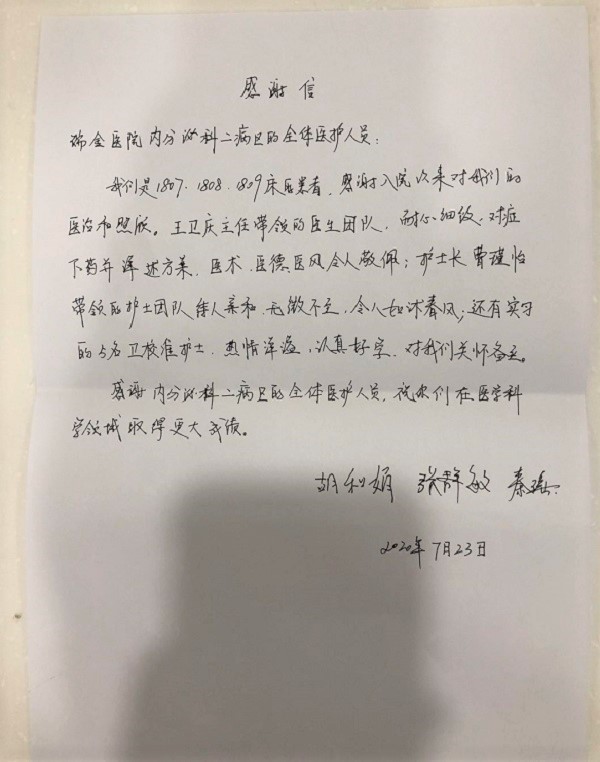 感谢信
瑞金医院内分泌科二病区的全体医护人员：
我们是1807、1808、1809床的患者，感谢入院以来对我们的
医治和照顾。王卫庆主任带领的医生团队，耐心、细致、对症
下药并详述方案，医术、医德医风令人敬佩；护士长曹瑾怡
带领的护士团队待人亲和、无微不至，令人如沐春风；还有实习
的5名卫校准护士，热情洋溢，认真好学，对我们关怀备至。
感谢内分泌科二病区的全体医护人员，祝你们在医学科
学领域取得更大成绩。
胡利娟 张群敏 秦瑶
2020年7月23日